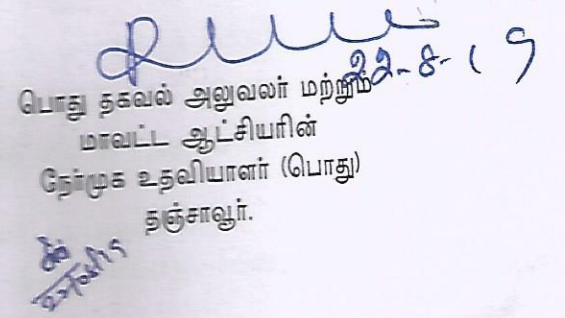 22-8-19
பொது தகவல் அலுவலர் மற்றும்
மாவட்ட ஆட்சியரின்
நேர்முக உதவியாளர் (பொது)
தஞ்சாவூர்.